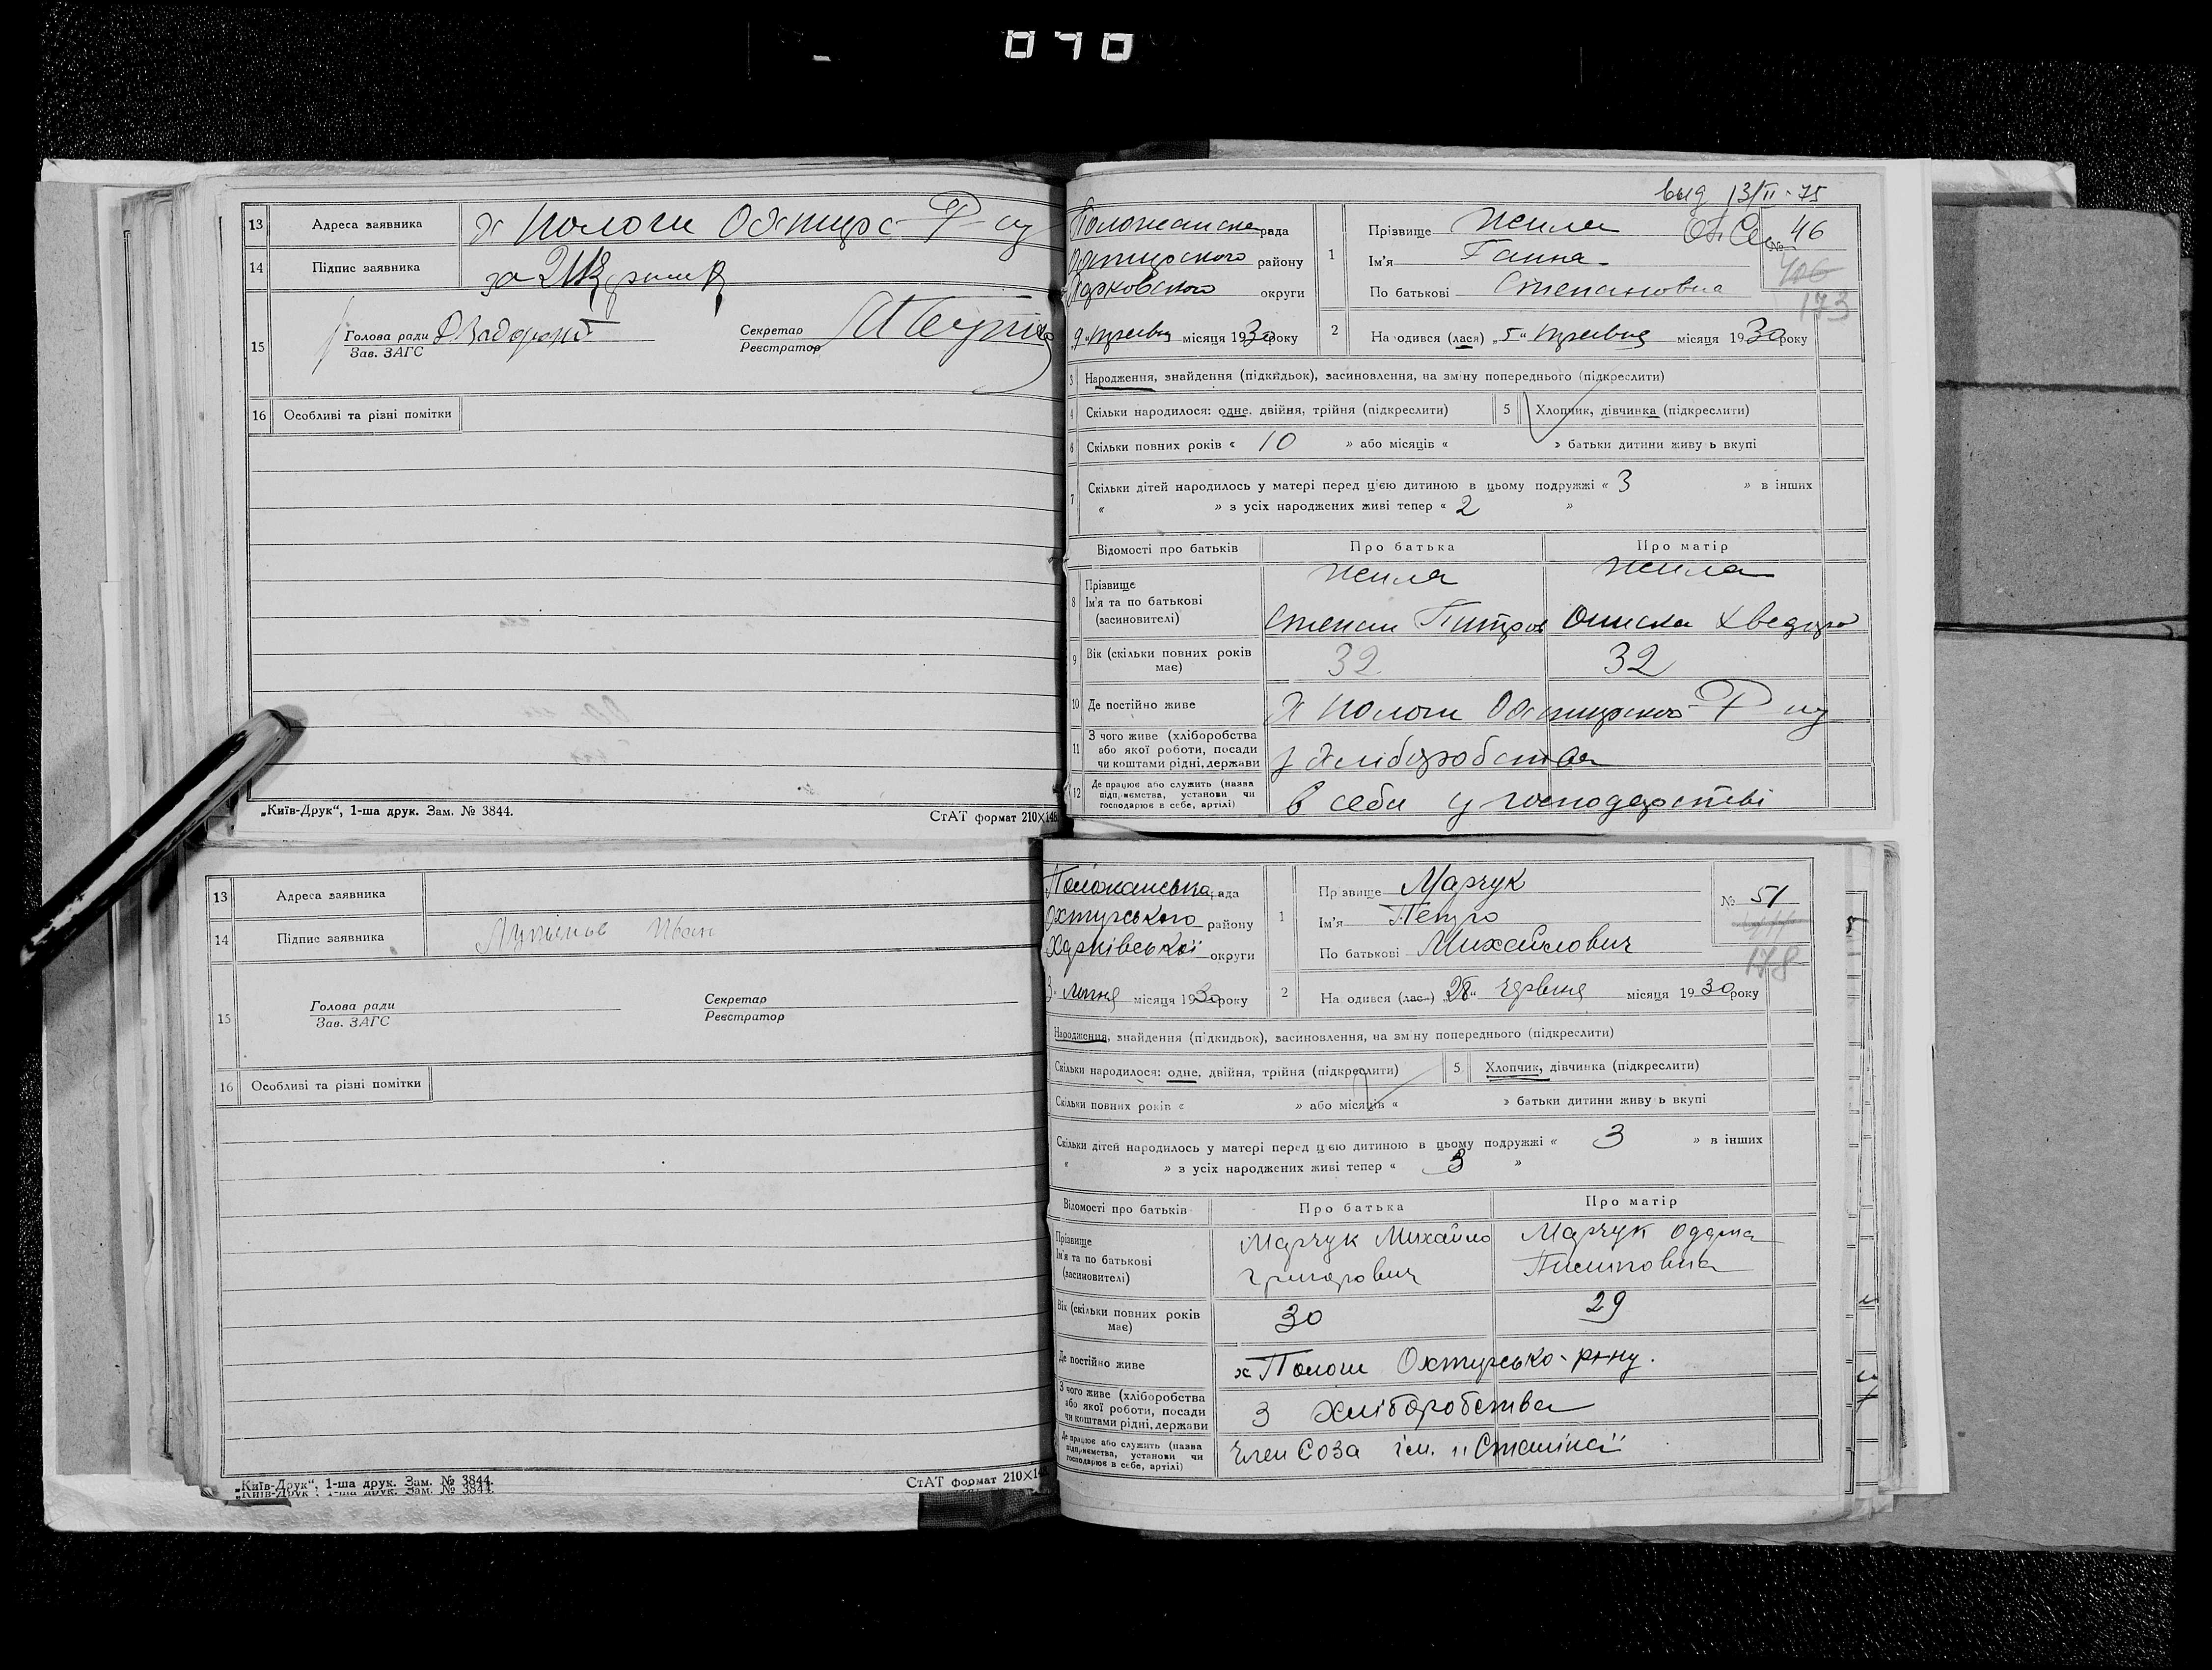 13 Адреса заявника х Пологи Охтирс- Р-ну
14 Підпис заявника за
15 Голова ради
Зав. ЗАГС
Секретар
Реєстратор
16 Особливі та різні помітки
„Київ-Друк“, 1-ша друк. Зам. № 3844.
СтАТ формат 210×148
выд 13/II-75
рада
району
округи
1 Прізвище Жила
№ 46
Ім'я Ганна
По батькові Степановна
173
місяця 1930 року
2 На одився (лася) „5“ місяця 1930 року
3 Народження, знайдення (підкидьок), засиновлення, на зміну попереднього (підкреслити)
4 Скільки народилося: одне, двійня, трійня (підкреслити) 5 Хлопчик, дівчинка (підкреслити)
6 Скільки повних років « 10 » або місяців « » батьки дитини живу ь вкупі
7 Скільки дітей народилось у матері перед цією дитиною в цьому подружжі « 3 » в інших
« » з усіх народжених живі тепер « 2 »
Відомості про батьків Про батька Про матір
8 Прізвище Жила Жила
Ім'я та по батькові
(засиновителі) Степан Питров Ониска Хведоро
9 Вік (скільки повних років має) 32 32
10 Де постійно живе х Пологи Охтирсько- Р ну
11 З чого живе (хліборобства
або якої роботи, посади
чи коштами рідні, держави з хліборобства
12 Де працює або служить (назва
підп,иємства, установи чи
господарює в себе, артілі) в себи у господарстві
13 Адреса заявника
14 Підпис заявника Іван
15 Голова ради
Зав. ЗАГС
Секретар
Реєстратор
16 Особливі та різні помітки
„Київ-Друк“, 1-ша друк. Зам. № 3844.
СтАТ формат 210×148
Положанська рада
Охтирського району
Харківської округи
1 Пр звище Марчук
№ 51
Ім'я Петро
По батькові Михайлович
178
3 липня місяця 1930 року
2 На одився (лас-) „28“ червня місяця 1930 року
Народження, знайдення (підкидьок), засиновлення, на зміну попереднього (підкреслити)
Скільки народилося: одне, двійня, трійня (підкреслити) 5 Хлопчик, дівчинка (підкреслити)
Скільки повних років « » або місяців « » батьки дитини живу ь вкупі
Скільки дітей народилось у матері перед цією дитиною в цьому подружжі « 3 » в інших
« » з усіх народжених живі тепер « 3 »
Відомості про батьків Про батька Про матір
Прізвище
Ім'я та по батькові
(засиновителі) Марчук Михайло Григорович Марчук Одарка
Вік (скільки повних років має) 30 29
Де постійно живе х Пологи Охтирсько- р-ну.
З чого живе (хліборобства
або якої роботи, посади
чи коштами рідні, держави З хліборобства
Де працює або служить (назва
підп,иємства, установи чи
господарює в себе, артілі) Член Соза ім. „Сталіна“